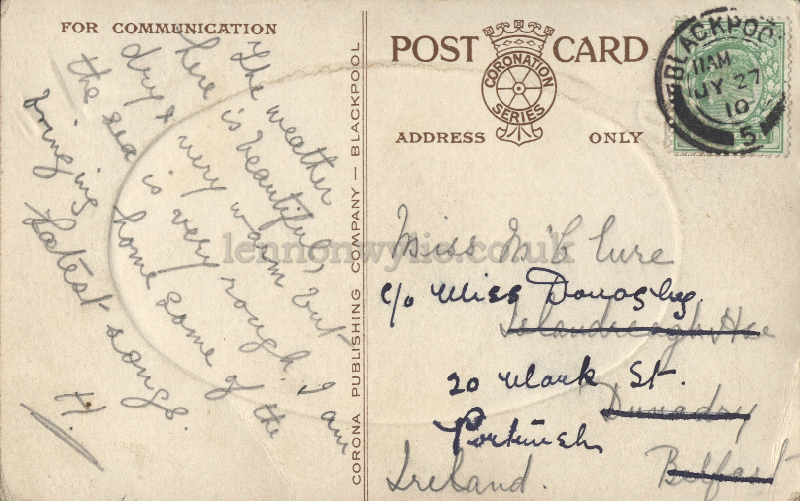 FOR COMMUNICATION
The weather
here is beautiful,
dry & very warm but
the sea is very rough. I am
bringing home some of the
latest songs.
H.
CORONA PUBLISHING COMPANY — BLACKPOOL
POST CARD
CORONATION
SERIES
ADDRESS ONLY
BLACKPOOL
11AM
JY 27
10
5
lennonwylie.co.uk
Miss McClure
c/o Miss Donaghy.
Islandreagh Hse
20 Mark St.
Dunadry
Portrush
Ireland.
Belfast